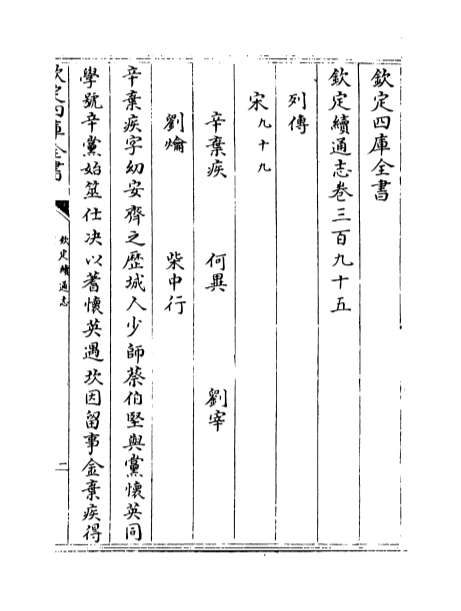 欽定四庫全書
欽定續通志卷三百九十五
列傳
宋九十九
辛棄疾 何異 劉宰
劉爚 柴中行
辛棄疾字幼安齊之歷城人少師蔡伯堅與黨懷英同
學號辛黨始筮仕决以蓍懷英遇坎因留事金棄疾得
欽定四庫全書
欽定續通志